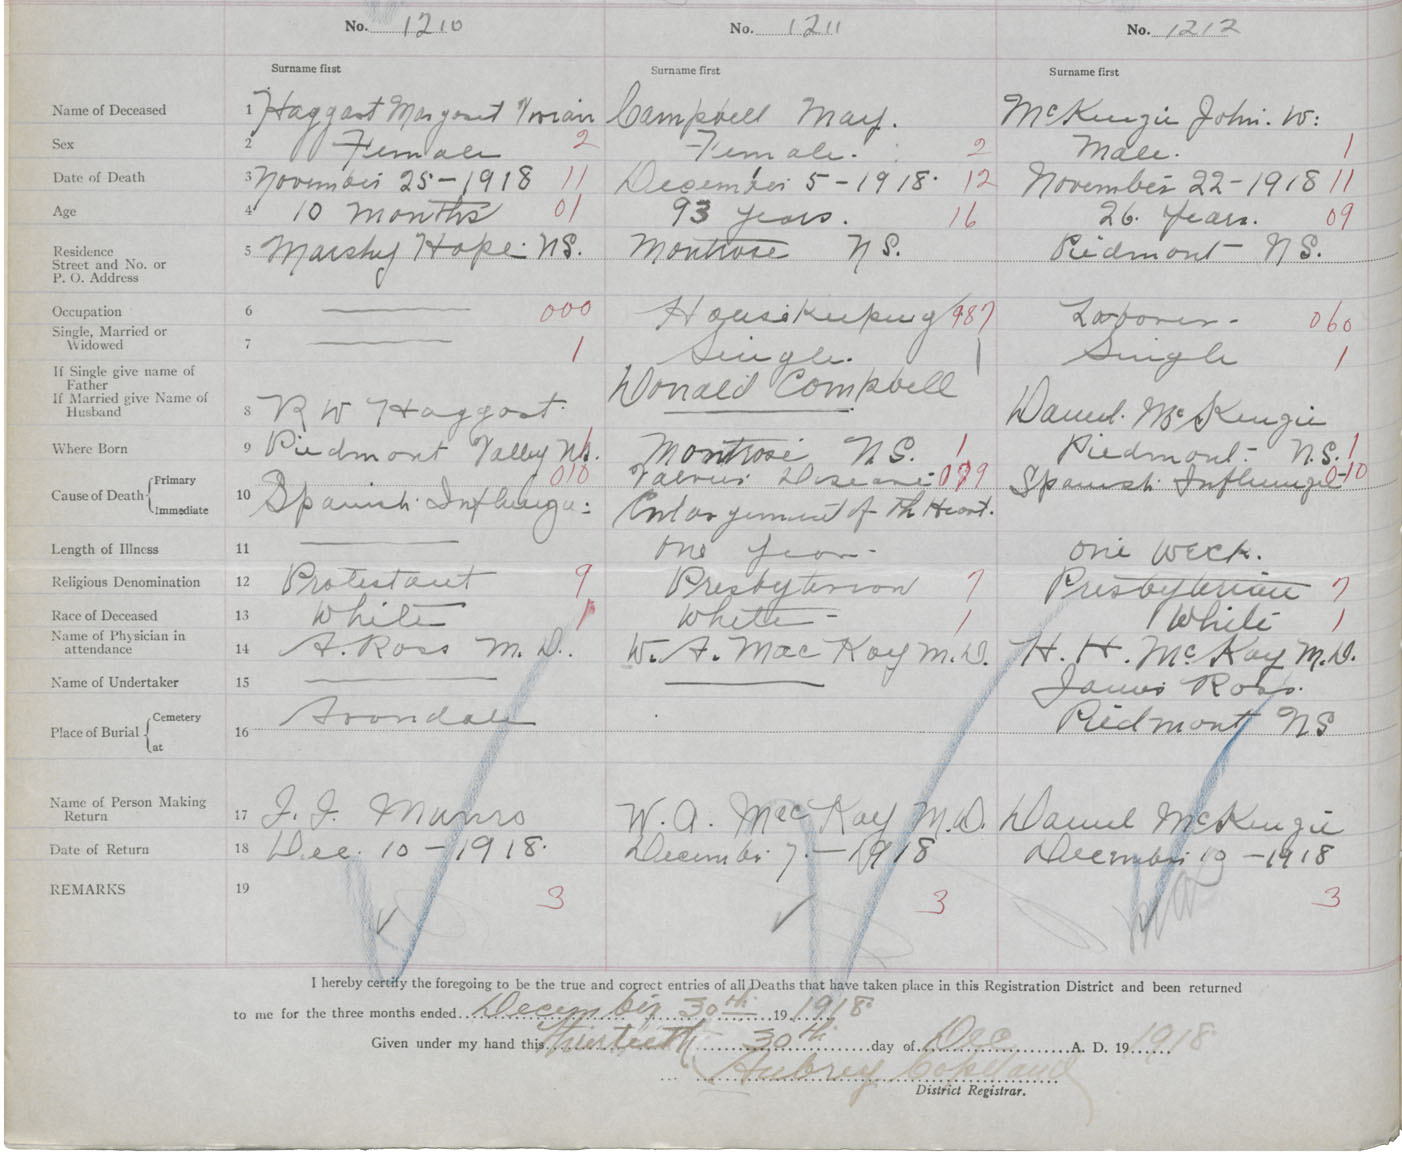 No. 1210 No. 1211 No. 1212
Surname first Surname first Surname first
Name of Deceased 1 Haggart Margaret Vivian Campbell May. McKenzie John. W:
Sex 2 Female 2 Female. 2 Male. 1
Date of Death 3 November 25-1918 11 December 5-1918. 12 November 22-1918 11
Age 4 10 months 01 93 years. 16 26 Years. 09
Residence
Street and No. or
P. O. Address
5 Marshy Hope. NS. Montrose NS. Piedmont NS.
Occupation 6 000 Housekeeping 987 Laborer- 060
Single, Married or
Widowed
7 1 Single. 1 Single 1
If Single give name of
Father
If Married give Name of
Husband
8 R W Haggart. Donald Campbell Daniel. McKenzie
Where Born 9 Piedmont Valley NS. 1 Montrose N.S. 1 Piedmont. N.S. 1
Cause of Death Primary 010 Valvus Disease 079 Spanish Influenza 010
Immediate 10 Spanish Influenza: Enlargement of th Heart.
Length of Illness 11 one year- one week.
Religious Denomination 12 Protestant 9 Presbyterian 7 Presbyterian 7
Race of Deceased 13 White 1 White- 1 White 1
Name of Physician in
attendance
14 A. Ross M.D. W. A. MacKay M.D. H. H. McKay M.D.
Name of Undertaker 15 James Ross.
Place of Burial Cemetery
at
16 Avondale Piedmont NS
Name of Person Making
Return
17 J. J. Munro W. A. MacKay M.D. Daniel McKenzie
Date of Return 18 Dec. 10-1918. December 7.-1918 December 10-1918
REMARKS 19 3 3 3
I hereby certify the foregoing to be the true and correct entries of all Deaths that have taken place in this Registration District and been returned
to me for the three months ended December 30th 19 1918.
Given under my hand this Thirtieth 30th day of Dec A. D. 19 1918
Aubrey Copeland
District Registrar.